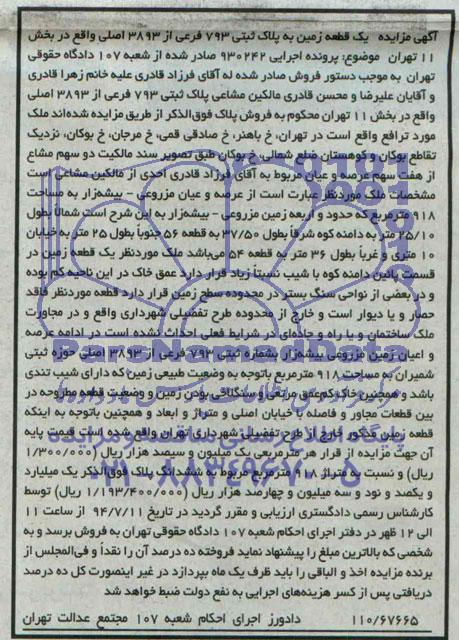 آگهی مزایده یک قطعه زمین به پلاک ثبتی ۷۹۳ فرعی از ۳۸۹۳ اصلی واقع در بخش
۱۱ تهران موضوع: پرونده اجرایی ۹۳۰۲۴۲ صادر شده از شعبه ۱۰۷ دادگاه حقوقی
تهران به موجب دستور فروش صادر شده له آقای فرزاد قادری علیه خانم زهرا قادری
و آقایان علیرضا و محسن قادری مالکین مشاعی پلاک ثبتی ۷۹۳ فرعی از ۳۸۹۳ اصلی
واقع در بخش ۱۱ تهران محکوم به فروش پلاک فوق‌الذکر از طریق مزایده شده‌اند ملک
مورد ترافع واقع است در تهران، خ باهنر، خ صادقی قمی، خ مرجان، خ بوکان، نزدیک
تقاطع بوکان و کوهستان ضلع شمالی، خ بوکان طبق تصویر سند مالکیت دو سهم مشاع
از هفت سهم عرصه و عیان مربوط به آقای فرزاد قادری احدی از مالکین مشاعی است
مشخصات ملک موردنظر عبارت است از عرصه و عیان مزروعی - بیشه‌زار به مساحت
۹۱۸ مترمربع که حدود و اربعه زمین مزروعی - بیشه‌زار به این شرح است شمالاً بطول
۲۵/۱۰ متر به دامنه کوه شرقاً بطول ۳۷/۵۰ به قطعه ۵۶ جنوباً بطول ۲۵ متر به خیابان
۱۰ متری و غرباً بطول ۳۶ متر به قطعه ۵۴ می‌باشد ملک موردنظر یک قطعه زمین در
قسمت پائین دامنه کوه با شیب نسبتاً زیاد قرار دارد عمق خاک در این ناحیه کم بوده
و در بعضی از نواحی سنگ بستر در محدوده سطح زمین قرار دارد قطعه موردنظر فاقد
حصار و یا دیوار است و خارج از محدوده طرح تفصیلی شهرداری واقع و در مجاورت
ملک ساختمان و یا راه و جاده‌ای در شرایط فعلی احداث نشده است در ادامه عرصه
و اعیان زمین مزروعی بیشه‌زار بشماره ثبتی ۷۹۳ فرعی از ۳۸۹۳ اصلی حوزه ثبتی
شمیران به مساحت ۹۱۸ مترمربع باتوجه به وضعیت طبیعی زمین که دارای شیب تندی
باشد و همچنین خاک کم‌عمق مرتعی و سنگلاخی بودن زمین و وضعیت قطعه مطروحه در
بین قطعات مجاور و فاصله با خیابان اصلی و متراژ و ابعاد و همچنین باتوجه به اینکه
قطعه زمین مذکور خارج از طرح تفصیلی شهرداری تهران واقع شده است قیمت پایه
آن جهت مزایده از قرار هر مترمربعی یک میلیون و سیصد هزار ریال (۱/۳۰۰/۰۰۰
ریال) و نسبت به متراژ ۹۱۸ مترمربع مربوط به ششدانگ پلاک فوق‌الذکر یک میلیارد
و یکصد و نود و سه میلیون و چهارصد هزار ریال (۱/۱۹۳/۴۰۰/۰۰۰ ریال) توسط
کارشناس رسمی دادگستری ارزیابی و مقرر گردید در تاریخ ۹۴/۷/۱۱ از ساعت ۱۱
الی ۱۲ ظهر در دفتر اجرای احکام شعبه ۱۰۷ دادگاه حقوقی تهران به فروش برسد و به
شخصی که بالاترین مبلغ را پیشنهاد نماید فروخته ده درصد آن را نقداً و فی‌المجلس از
برنده مزایده اخذ و الباقی را باید ظرف یک ماه بپردازد در غیر اینصورت کل ده درصد
دریافتی پس از کسر هزینه‌های اجرایی به نفع دولت ضبط خواهد شد
۱۱۰/۶۷۶۶۵ دادورز اجرای احکام شعبه ۱۰۷ مجتمع عدالت تهران